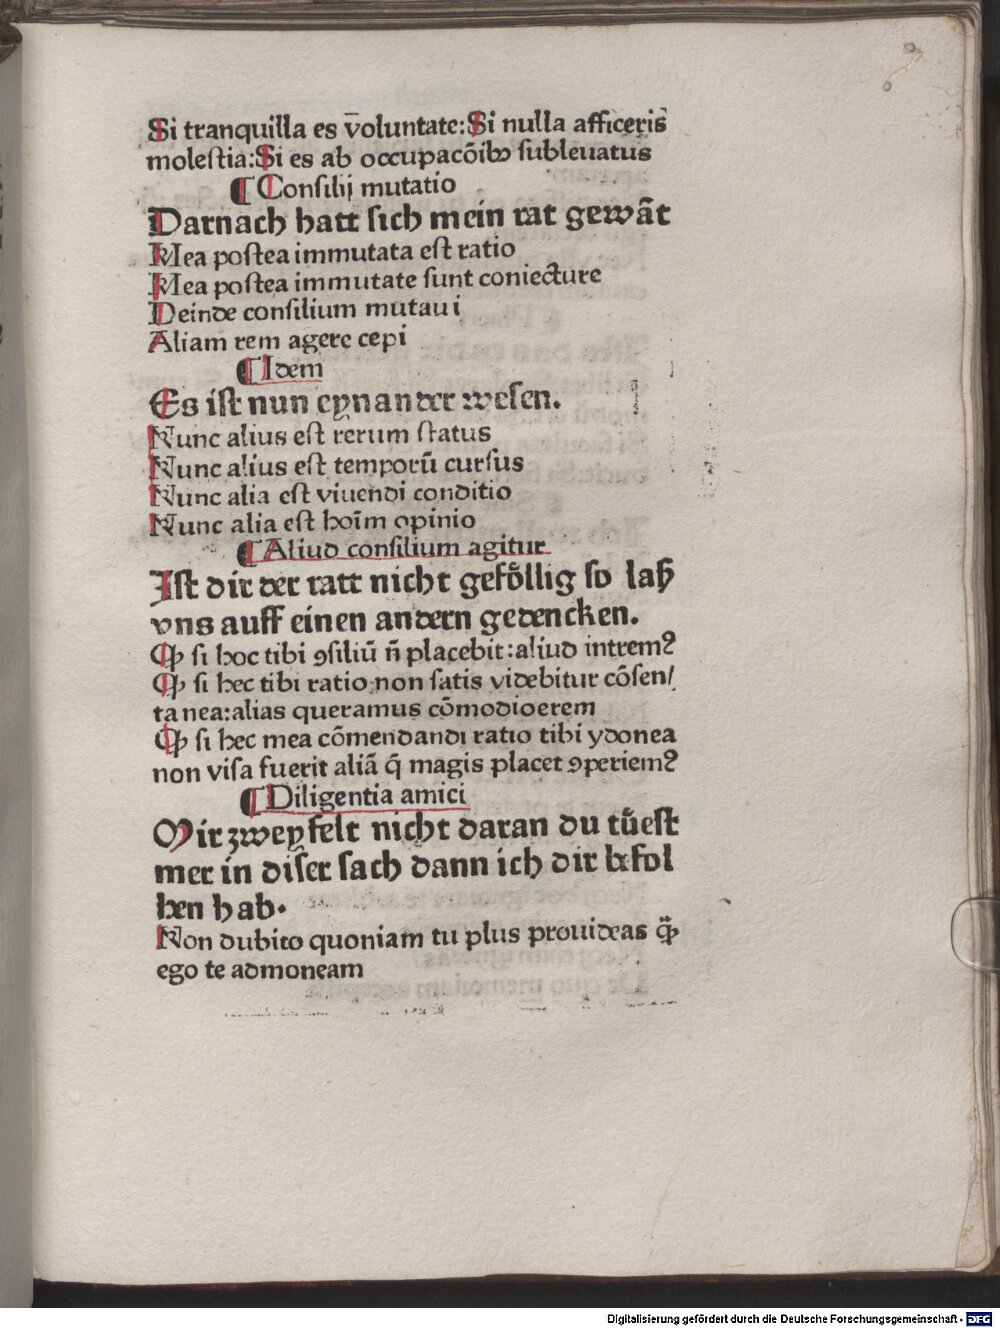 Si tranquilla es v̄oluntate: Si nulla afficeris
molestia: Si es ab occupacōibꝰ subleuatus
¶ Consilij mutatio
Darnach hatt sich mein rat gewāt
Mea postea immutata est ratio
Mea postea immutate sunt coniecture
Deinde consilium mutaui
Aliam rem agere cepi
¶ Idem
Es ist nun eynander wesen.
Nunc alius est rerum status
Nunc alius est temporū cursus
Nunc alia est viuendi conditio
Nunc alia est hoīm opinio
¶ Aliud consilium agitur
Ist dir der ratt nicht gefoͤllig so laß
vns auff einen andern gedencken.
Qꝫ si hoc tibi ꝯsiliū n̄ placebit: aliud intremꝰ
Qꝫ si hec tibi ratio non satis videbitur cōsen/
tanea: alias queramus cōmodioerem
Qꝫ si hec mea cōmendandi ratio tibi ydonea
non visa fuerit aliā q̄ magis placet ꝯperiemꝰ
¶ Diligentia amici
Mir zweyfelt nicht daran du tuͤest
mer in diser sach dann ich dir befol
hen hab.
Non dubito quoniam tu plus prouideas qꝫ̄
ego te admoneam
Digitalisierung gefördert durch die Deutsche Forschungsgemeinschaft - DFG